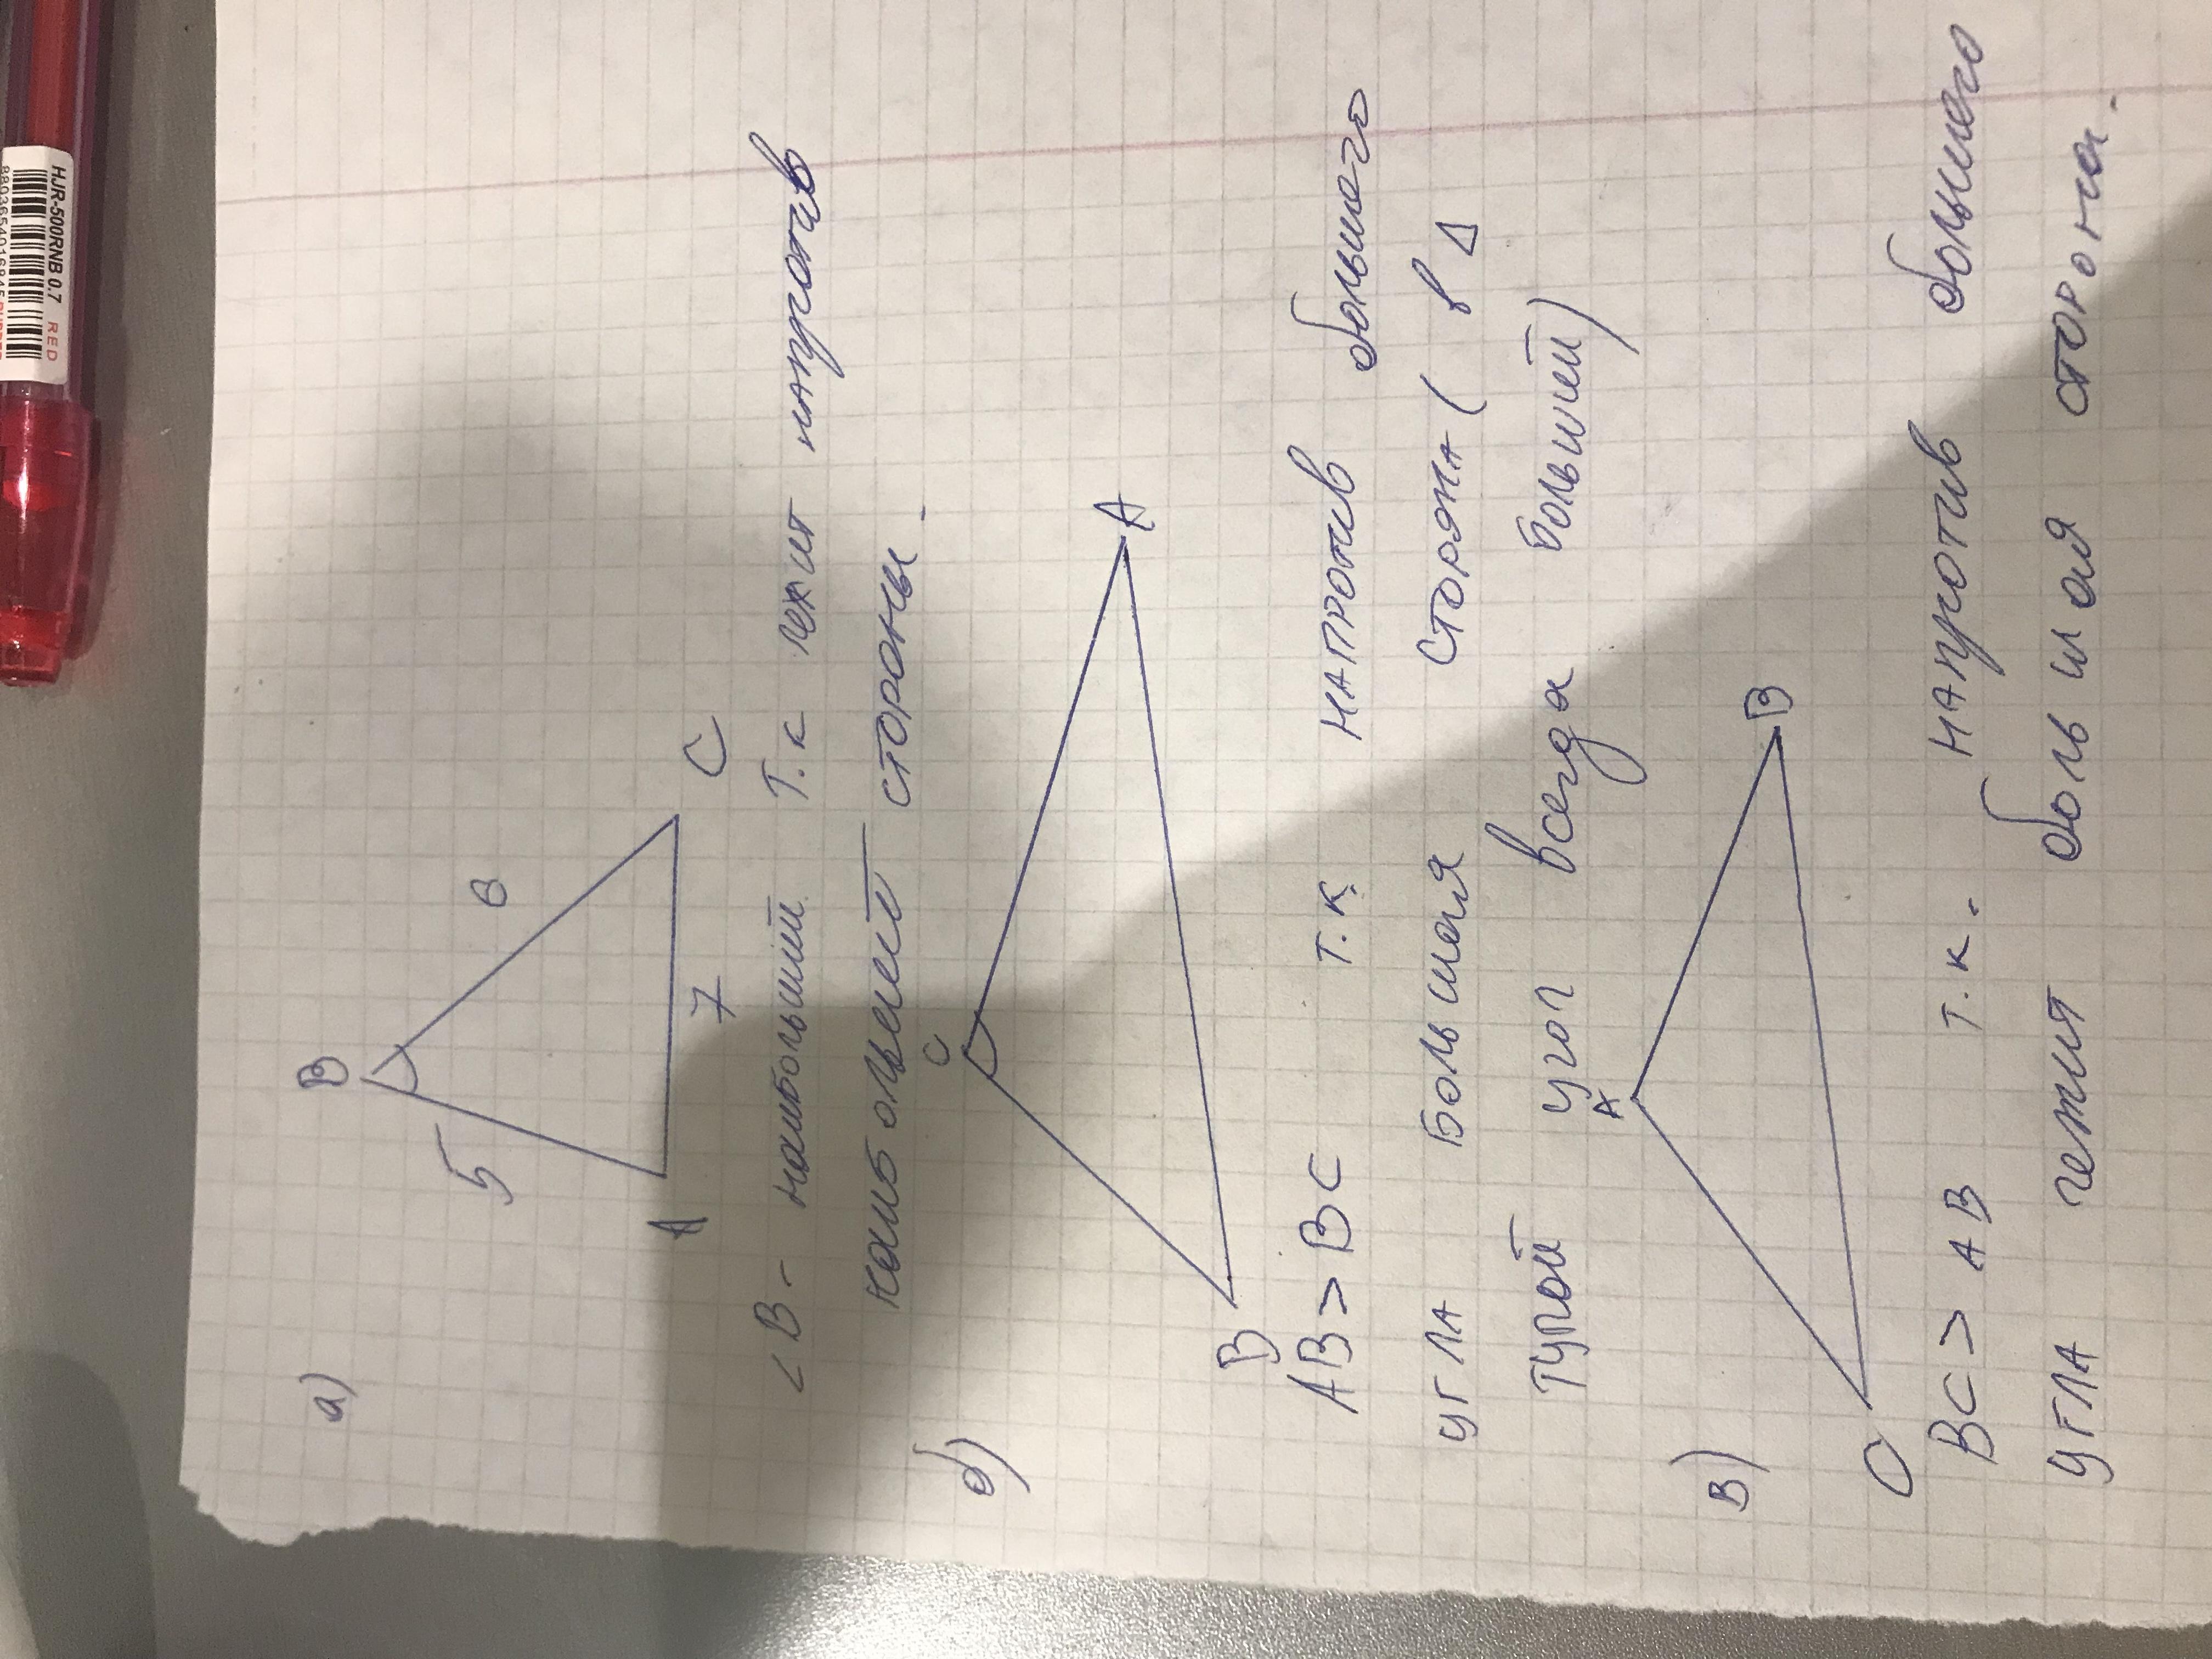 HJR-500RNB 0.7 RED
а)
B
5
6
A
7
C
<B - наибольший т.к лежит напротив
наибольшей стороны.
б)
C
B
A
AB > BC т.к напротив большого
угла большая сторона ( в Δ
тупой угол всегда больший)
в)
A
B
C
BC > AB т.к. напротив большего
угла лежит большая сторона.